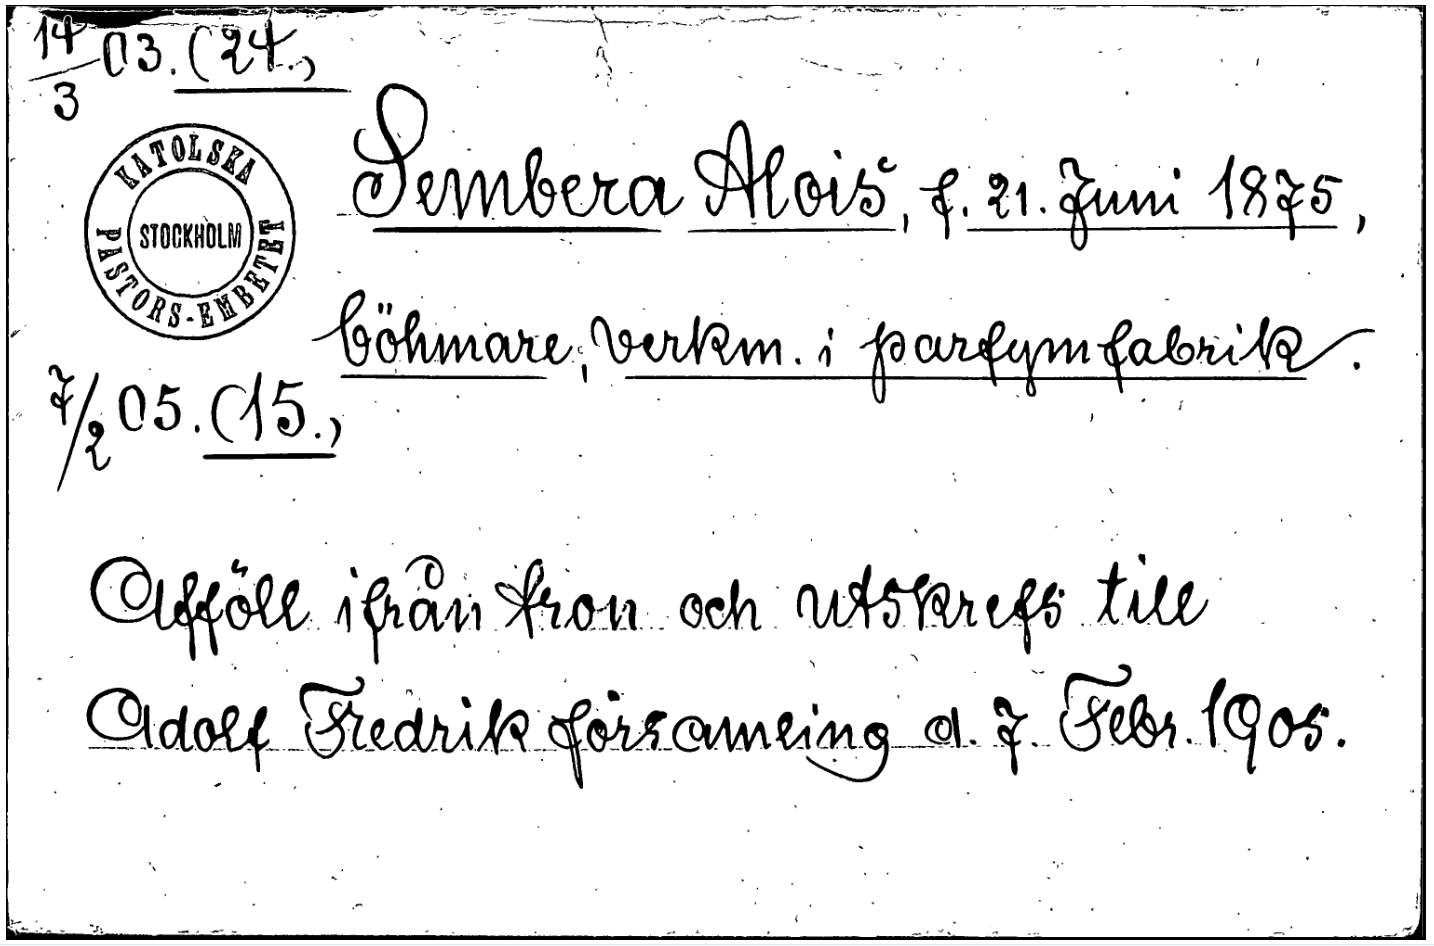 14/3 03. (24.)
Sembera Aloiš, f. 21. Juni 1875,
KATOLSKA
STOCKHOLM
PASTORS-EMBETET
böhmare, verkm. i parfymfabrik.
7/2 05. (15.)
Afföll ifrån tron och utskrefs till
Adolf Fredrik församling d. 7. Febr. 1905.